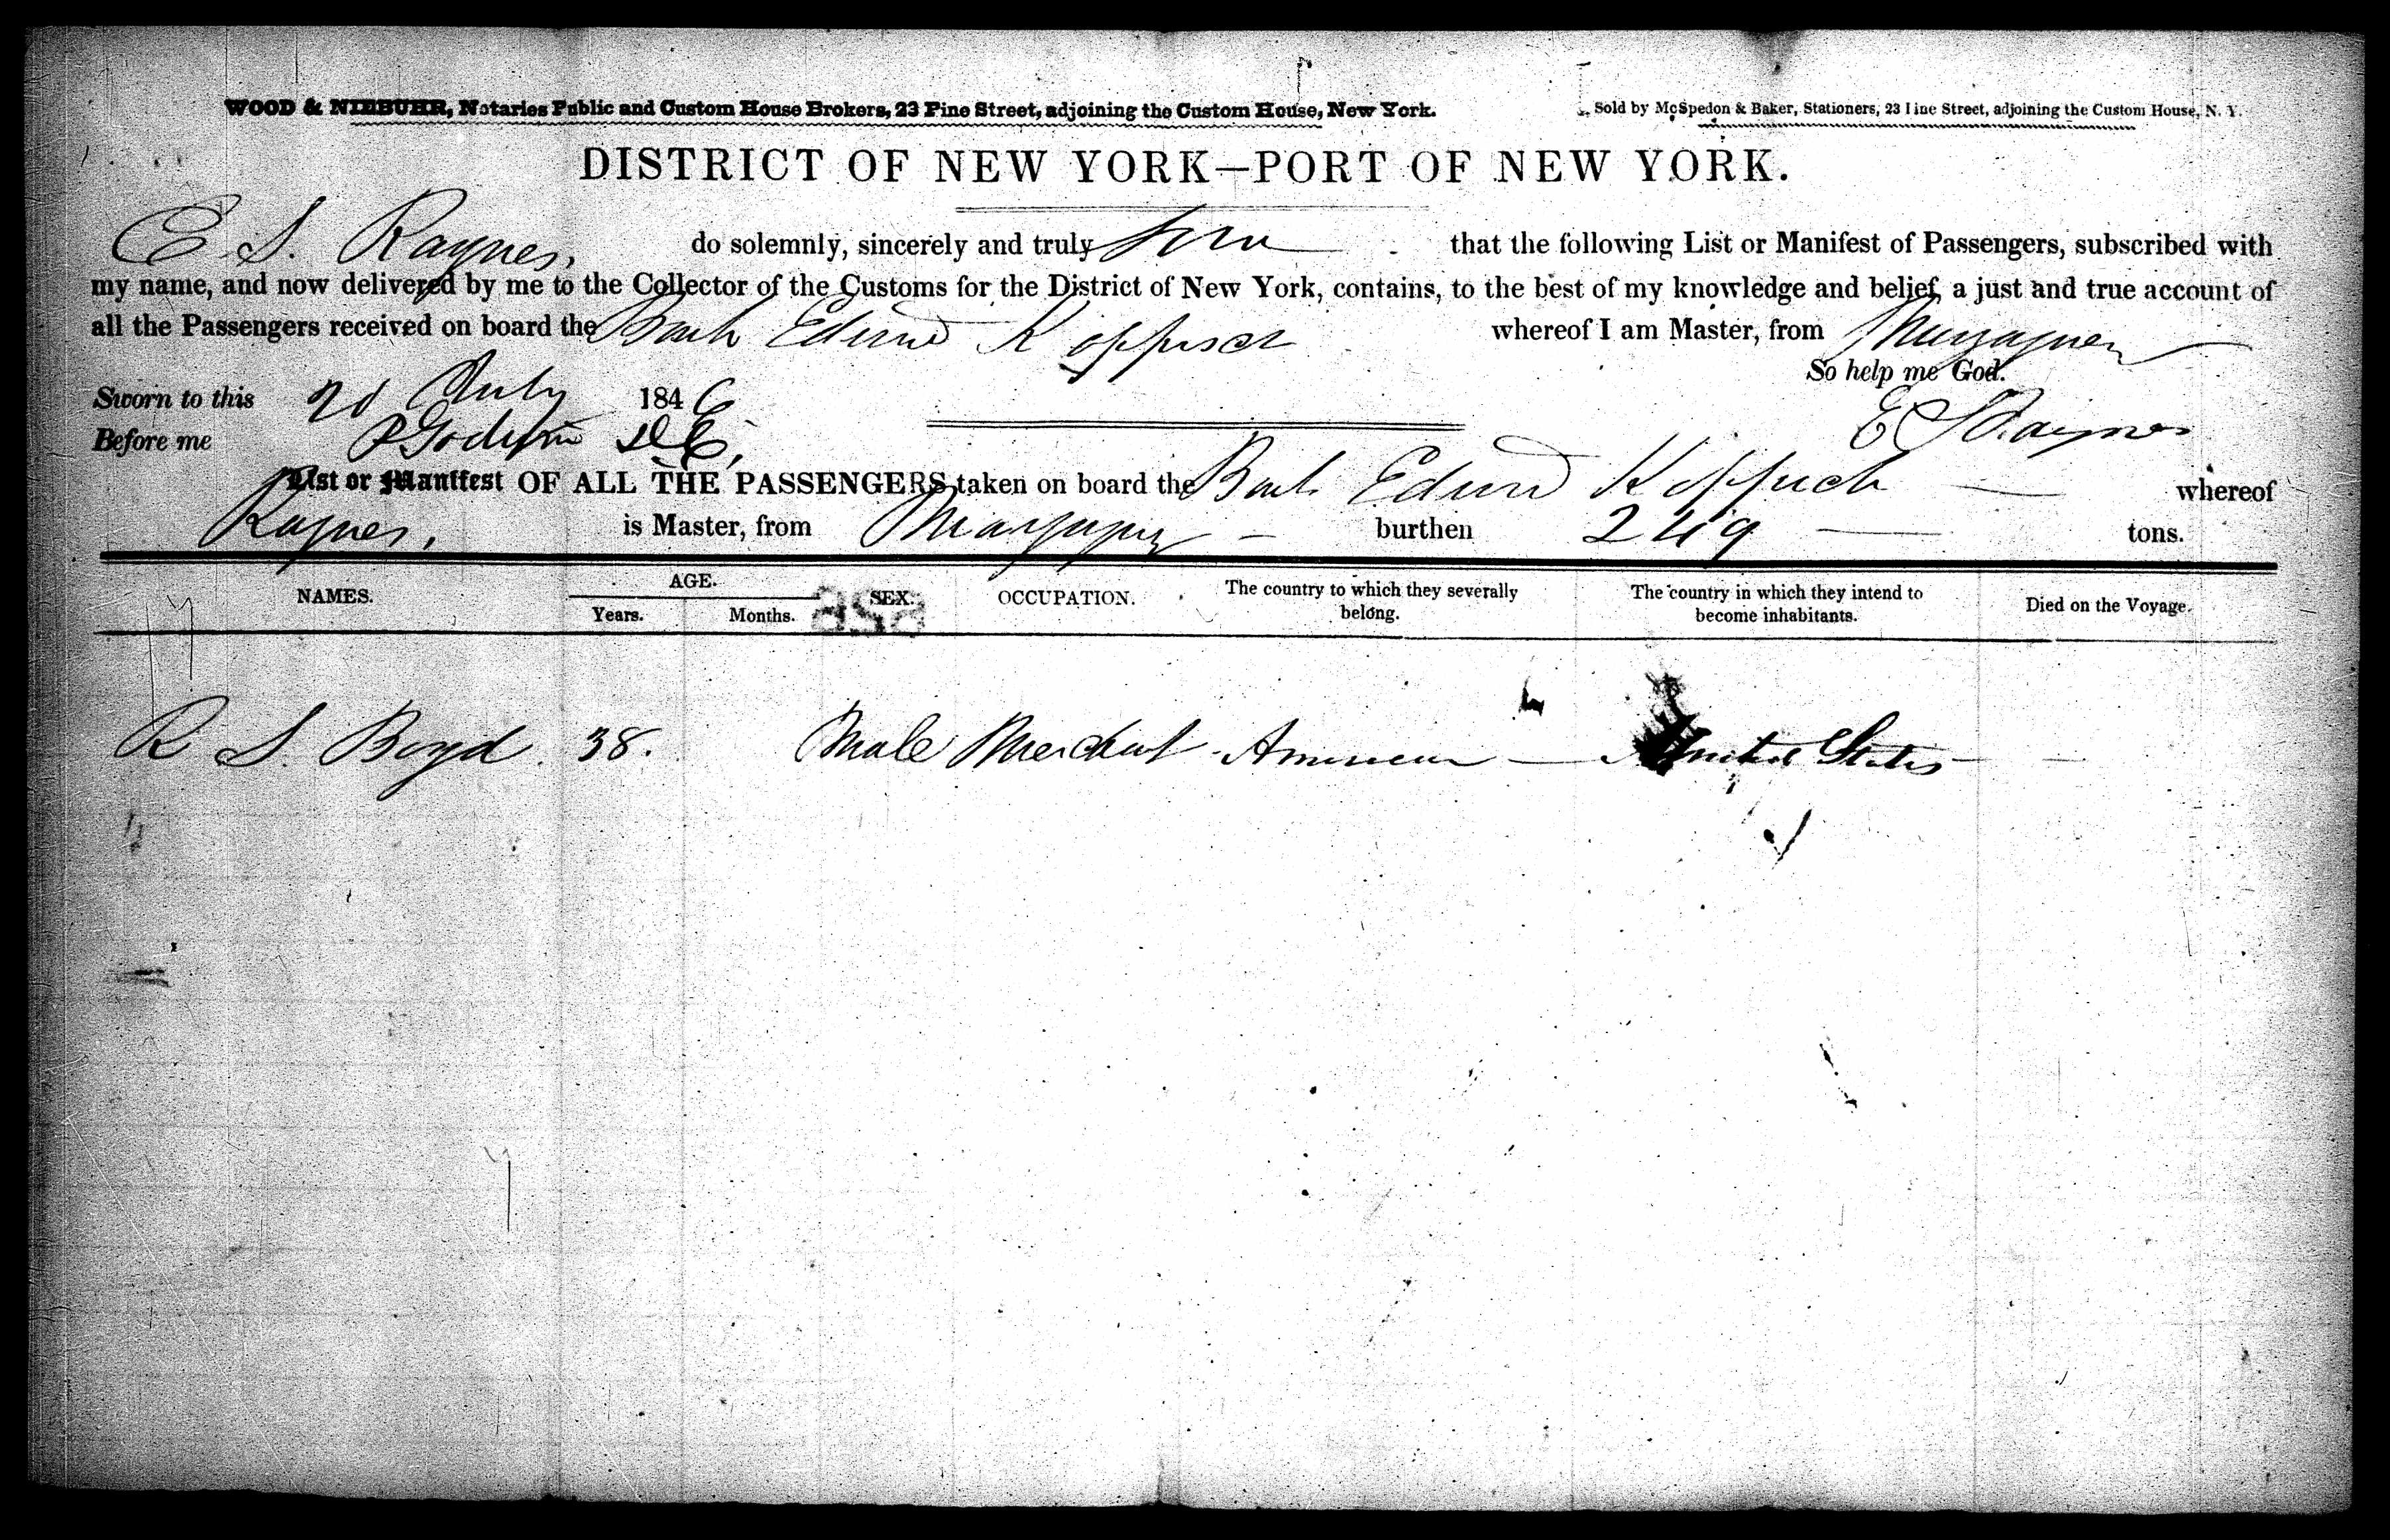 WOOD & NIEBUHR, Notaries Public and Custom House Brokers, 23 Pine Street, adjoining the Custom House, New York. Sold by McSpedon & Baker, Stationers, 23 Pine Street, adjoining the Custom House, N. Y.
DISTRICT OF NEW YORK—PORT OF NEW YORK.
E. S. Raynes, do solemnly, sincerely and truly that the following List or Manifest of Passengers, subscribed with
my name, and now delivered by me to the Collector of the Customs for the District of New York, contains, to the best of my knowledge and belief, a just and true account of
all the Passengers received on board the Bark Edward whereof I am Master, from
So help me God.
Sworn to this July 1846
Before me E S Raynes
List or Manifest OF ALL THE PASSENGERS taken on board the Bark Edward whereof
Raynes, is Master, from burthen 249 tons.
NAMES. AGE. SEX. OCCUPATION. The country to which they severally belong. The country in which they intend to become inhabitants. Died on the Voyage.
Years. Months.
R S. Boyd. 38. Male Merchant American United States